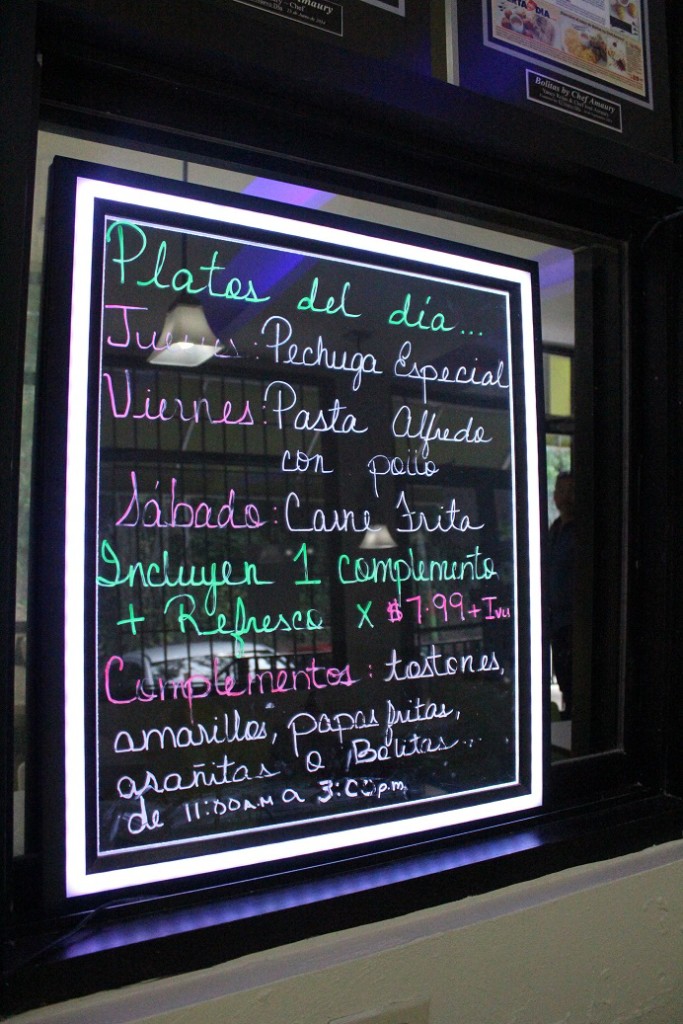 Amaury
– Chef
Bolitas by Chef Amaury
Platos del día...
Jueves: Pechuga Especial
Viernes: Pasta Alfredo
con pollo
Sábado: Carne Frita
Incluyen 1 complemento
+ Refresco x $7.99 + Ivu
Complementos: tostones,
amarillos, papas fritas,
arañitas o Bolitas...
de 11:00 A.M a 3:00 p.m.